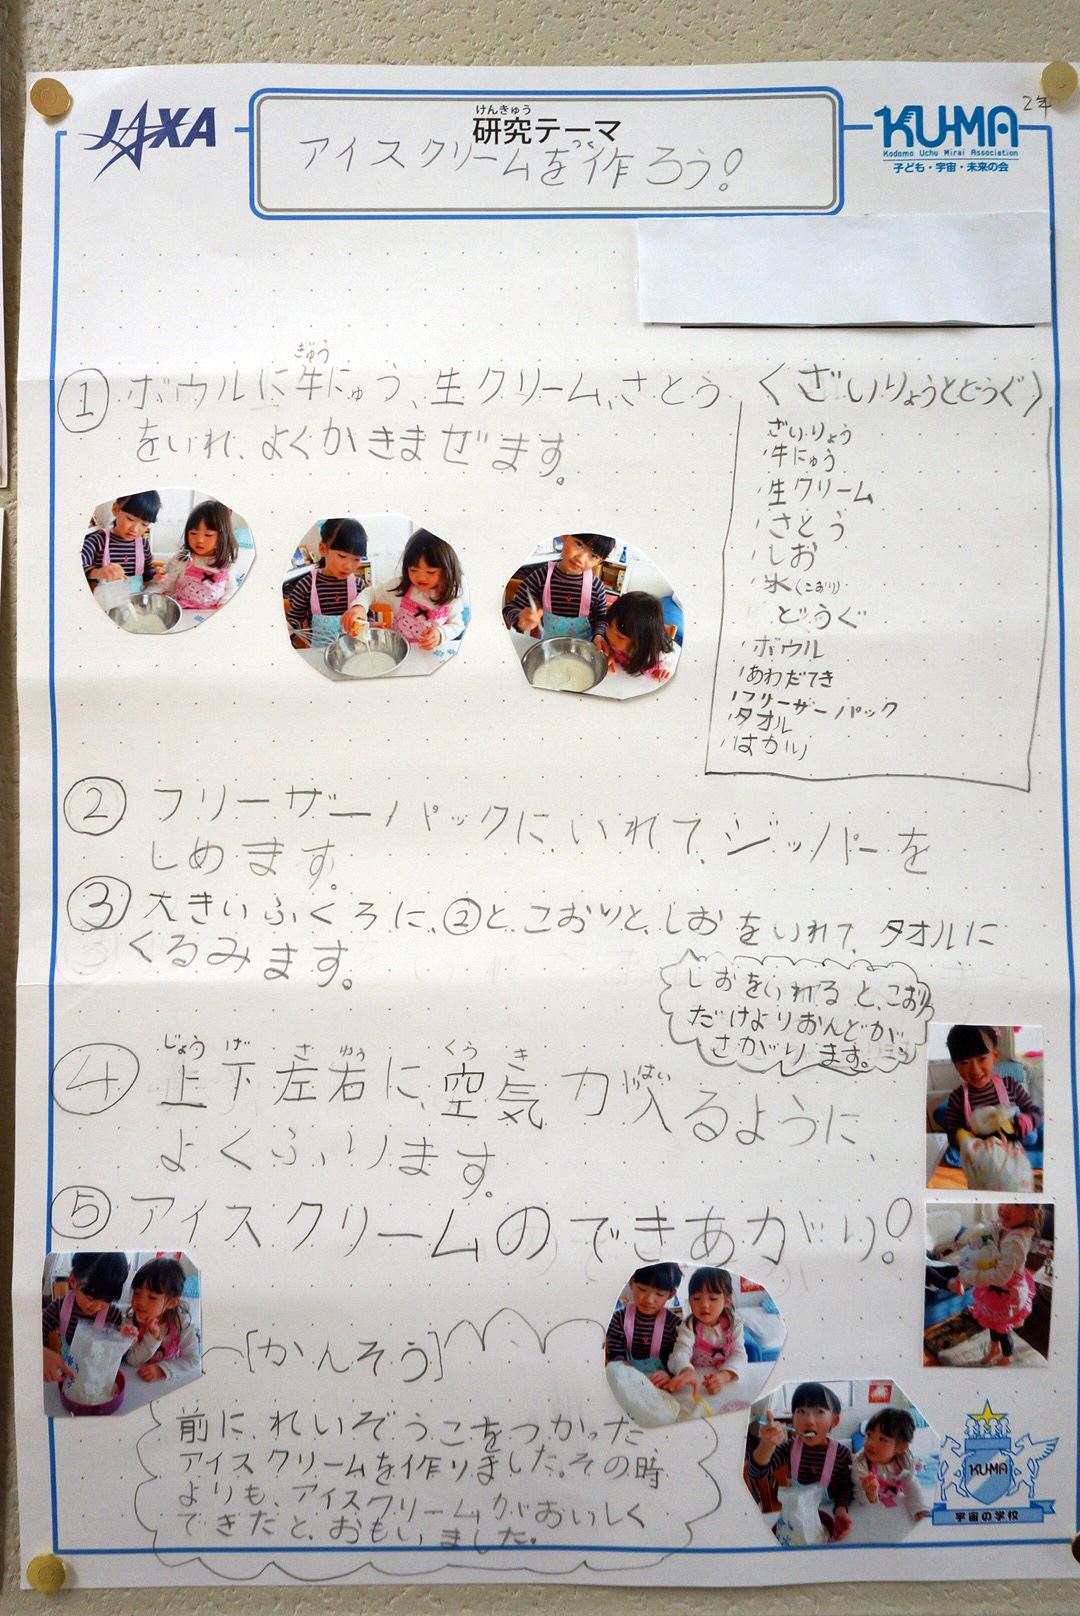 JAXA
けんきゅう
研究テーマ
つく
アイスクリームを作ろう!
KU-MA
Kodomo Uchu Mirai Association
子ども・宇宙・未来の会
2年
ぎゅう
①ボウルに牛にゅう、生クリーム、さとう
をいれ、よくかきまぜます。
〈ざいりょうとどうぐ〉
ざいりょう
・牛にゅう
・生クリーム
・さとう
・しお
・氷(こおり)
どうぐ
・ボウル
・あわだてき
・フリーザーパック
・タオル
・はかり
②フリーザーパックに、いれて、ジッパーを
しめます。
③大きいふくろに、②と、こおりと、しおをいれて、タオルに
くるみます。
しおをいれると、こおり
だけよりおんどが
さがります。
じょう げ さ ゆう くう き はい
④上下左右に、空気が入るように、
よくふります。
⑤アイスクリームのできあがり!
[かんそう]
前に、れいぞうこをつかった
アイスクリームを作りました。その時
よりも、アイスクリームがおいしく
できたと、おもいました。
KU-MA
宇宙の学校